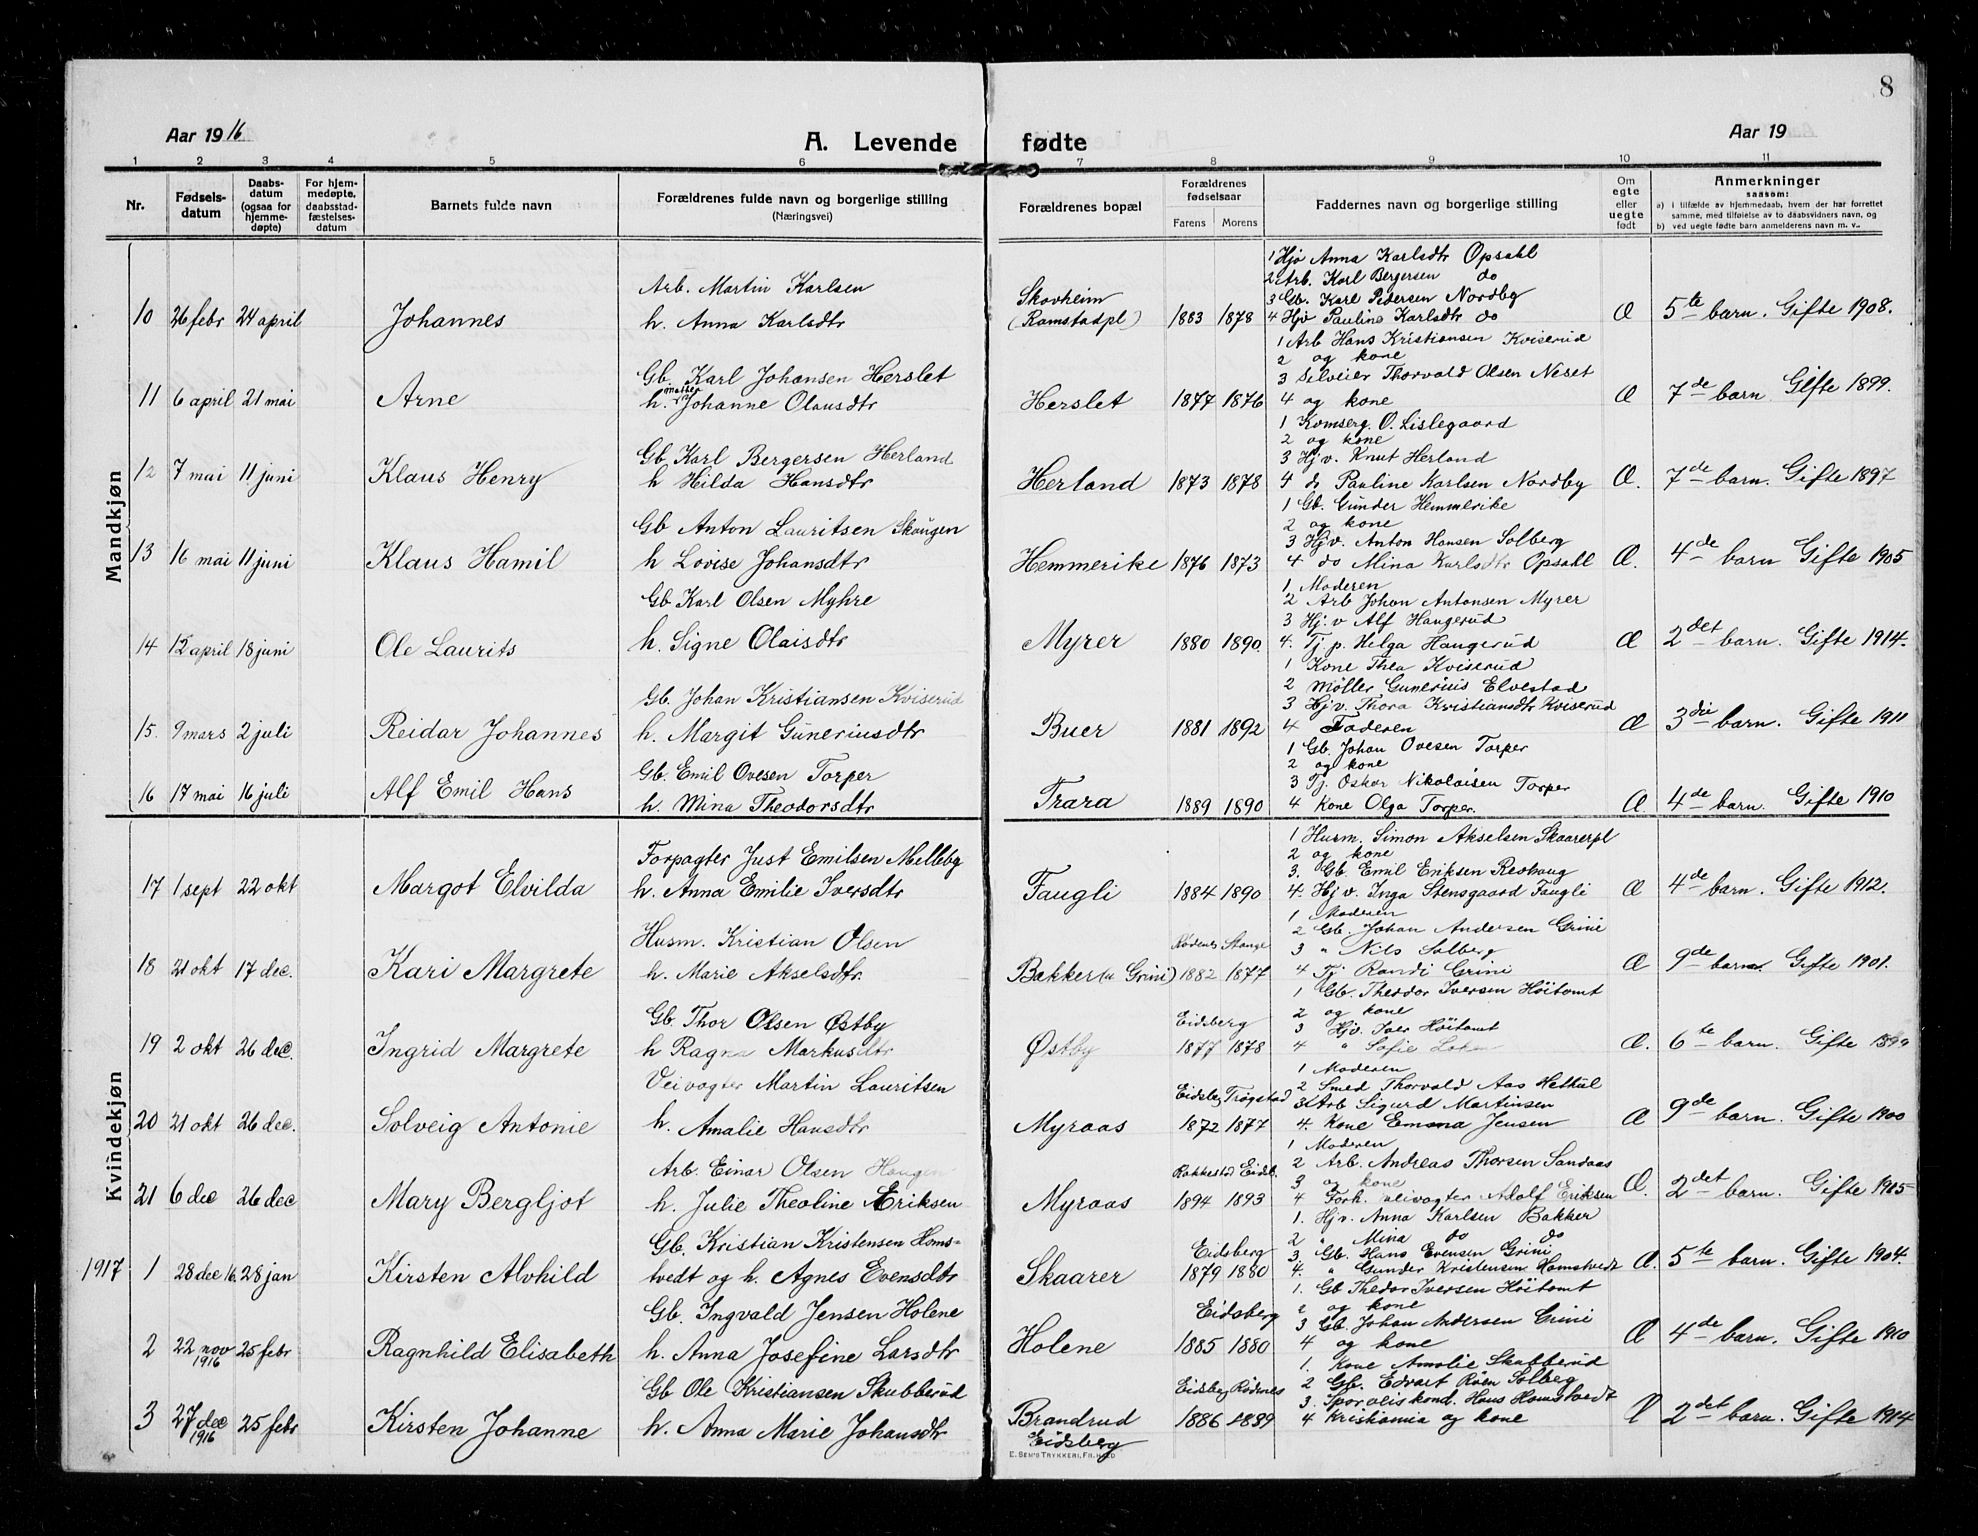 8
Aar 1916
A. Levende fødte
Aar 19
1 2 3 4 5 6 7 8 9 10 11
Nr.
Fødsels-
datum
Daabs-
datum
(ogsaa for
hjemme-
døpte)
For hjem-
medøpte,
daabsstad-
fæstelses-
datum
Barnets fulde navn
Forældrenes fulde navn og borgerlige stilling
(Næringsvei)
Forældrenes bopæl
Forældrenes
fødselsaar
Farens Morens
Faddernes navn og borgerlige stilling
Om
egte
eller
uegte
født
Anmerkninger
saasom:
a) i tilfælde av hjemmedaab, hvem der har forrettet
samme, med tilføielse av to daabsvidners navn, og
b) ved uegte fødte barn anmelderens navn m. v..
Mandkjøn
10 26 febr 24 april Johannes
Arb. Martin Karlsen
h. Anna Karlsdtr
Skovheim
(Ramstadpl)
1883 1878
1 Hjv Anna Karlsdtr Opsahl
2 Arb. Karl Bergersen do
3 Gb. Karl Pedersen Nordby
4 Hjv Pauline Karlsdtr do
Æ 5te barn. Gifte 1908.
11 6 april 21 mai Arne
Gb. Karl Johansen Herslet
h. Mathea Johanne Olausdtr
Herslet 1877 1876
1 Arb Hans Kristiansen Kviserud
2 og kone
3 Selveier Thorvald Olsen Neset
4 og kone
Æ 7de barn. Gifte 1899.
12 7 mai 11 juni Klaus Henry
Gb. Karl Bergersen Herland
h Hilda Hansdtr
Herland 1873 1878
1 Komserg. O. Lislegaard
2 og kone
3 Hjv. Knut Herland
4 do Pauline Karlsen Nordby
Æ. 7de barn. Gifte 1897
13 16 mai 11 juni Klaus Hamil
Gb Anton Lauritsen Skaugen
h Lovise Johansdtr
Hemmerike 1876 1873
1 Gb. Gunder Hemmerike
2 og kone
3 Hjv. Anton Hansen Solberg
4 do Mina Karlsdtr Opsahl
Æ. 4de barn Gifte 1905
14 12 april 18 juni Ole Laurits
Gb Karl Olsen Myhre
h. Signe Olaisdtr
Myrer 1880 1890.
1 Moderen
2 Arb Johan Antonsen Myrer
3 Hj.v Alf Haugerud
4. Tj. p. Helga Haugerud
Æ 2det barn. Gifte 1914.
15. 9 mars 2 juli Reidar Johannes
Gb. Johan Kristiansen Kviserud
h. Margit Guneriusdtr
Buer 1881 1892
1 Kone Thea Kviserud
2 Møller Gunerius Elvestad
3 Hjv. Thora Kristiansdtr Kviserud
4 Faderen
Æ 3die barn. Gifte 1911
16 17 mai 16 juli Alf Emil Hans
Gb. Emil Ovesen Torper
h. Mina Theodorsdtr
Trara 1889 1890
1 Gb. Johan Ovesen Torper
2 og kone
3 Tj. Oskar Nikolaisen Torper
4 Kone Olga Torper.
Æ. 4de barn. Gifte 1910
Kvindekjøn
17 1 sept 22 okt Margot Elvilda
Forpagter Just Emilsen Melleby
h. Anna Emilie Iversdtr
Faugli 1884 1890
1 Husm. Simon Akselsen Skaarerpl
2 og kone
3. Gb. Emil Eriksen Revhaug
4. Hjv. Inga Stensgaard Faugli
Æ 4de barn. Gifte 1912.
18 21 okt 17 dec. Kari Margrete
Husm. Kristian Olsen
h. Marie Akselsdtr.
Bakker (u Grini)
Rødenes Stange
1882 1877
1 Moderen
2 Gb. Johan Andersen Grini
3 " Nils Solberg
4 Tj Randi Grini
Æ 9de barn. Gifte 1901.
19 2 okt 26 dec. Ingrid Margrete
Gb. Thor Olsen Østby
h Ragna Markusdtr
Østby
Eidsberg
1877 1878
1 Gb. Theodor Iversen Höitomt
2 og kone
3 Hjv. Iver Höitomt
4 " Sofie
Æ. 6te barn. Gifte 1899
20 21 okt 26 dec. Solveig Antonie
Veivogter Martin Lauritsen
h. Amalie Hansdtr
Myraas
Eidsbg Trøgstad
1872 1877
1 Moderen
2 Smed Thorvald Aas Hetkul
3 Arb Sigurd Martinsen
4. Kone Emma Jensen
Æ 9de barn. Gifte 1900
21 6 dec 26 dec Mary Bergljot
Arb. Einar Olsen Haugen
h. Julie Theoline Eriksen
Myraas
Rakkestad Eidsb.
1894 1893
1 Moderen
2 Arb. Andreas Thorsen Sandaas
3 og kone
4 Forh. veivogter Adolf Eriksen
Æ. 2det barn. Gifte 1915
1917 1 28 dec 16. 28 jan Kirsten Alvhild
Gb. Kristian Kristensen Homs-
tvedt og h. Agnes Evensdtr
Skaarer
Eidsberg
1879 1880
1. Hjv. Anna Karlsen Bakker
2 " Mina do do
3. Gb. Hans Evensen Grini
4. " Gunder Kristensen Homstvedt
Æ. 5te barn. Gifte 1904.
2 22 nov 1916 25 febr Ragnhild Elisabeth
Gb. Ingvald Jensen Holene
h. Anna Josefine Larsdtr
Holene
Eidsberg
1885 1880
1. Gb Thedor Iversen Höitomt
2 og kone
3 Gb. Johan Andersen Grini
4 og kone
Æ 4de barn. Gifte 1910
3 27 dec 1916 25 febr Kirsten Johanne
Gb Ole Kristiansen Skubberud
h. Anna Marie Johansdtr
Brandrud
Eidsberg
Eidsbg Rødenes
1886 1889
1. Kone Amalie Skubberud
2 Gb. Edvart Røen Solberg
3. Sporveiskond. Hans Homstvedt
4 Kristiania og kone
Æ 2det barn. Gifte 1914
E. SEM'S TRYKKERI, FR.HALD